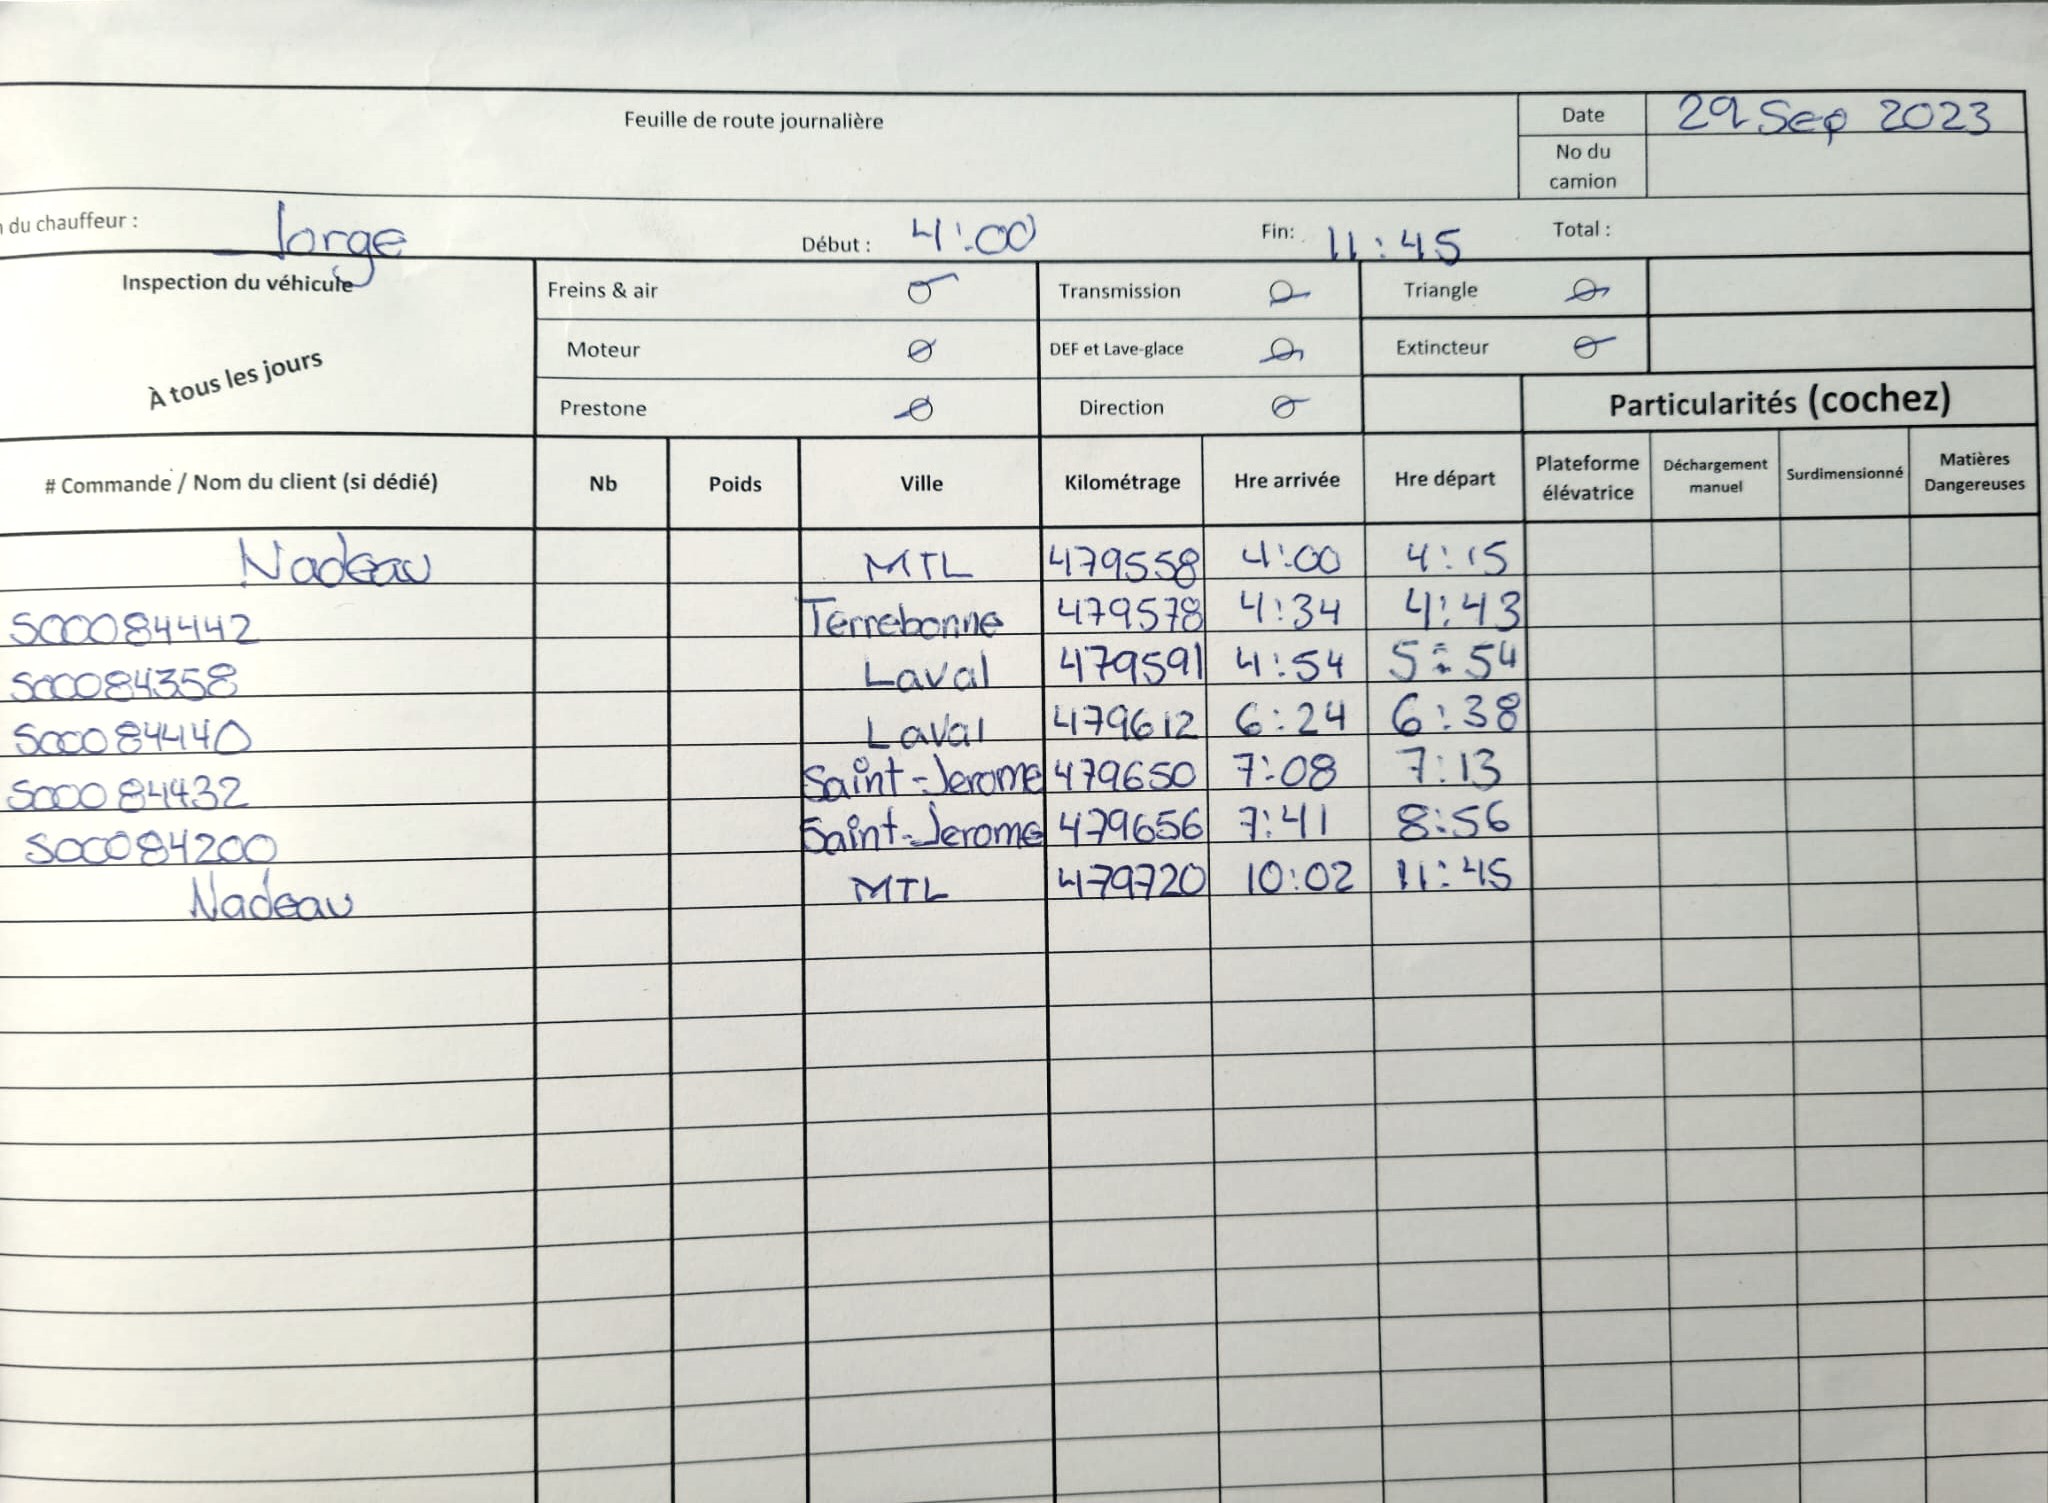 Feuille de route journalière
Date 29 Sep 2023
No du camion
du chauffeur : Jorge Début : 4:00 Fin: 11:45 Total :
Inspection du véhicule Freins & air Transmission Triangle
À tous les jours Moteur DEF et Lave-glace Extincteur
Prestone Direction Particularités (cochez)
# Commande / Nom du client (si dédié) Nb Poids Ville Kilométrage Hre arrivée Hre départ Plateforme élévatrice Déchargement manuel Surdimensionné Matières Dangereuses
Nadeau MTL 479558 4:00 4:15
SO0084442 Terrebonne 479578 4:34 4:43
SO0084358 Laval 479591 4:54 5:54
SO0084440 Laval 479612 6:24 6:38
SO0084432 Saint-Jerome 479650 7:08 7:13
SO0084200 Saint-Jerome 479656 7:41 8:56
Nadeau MTL 479720 10:02 11:45